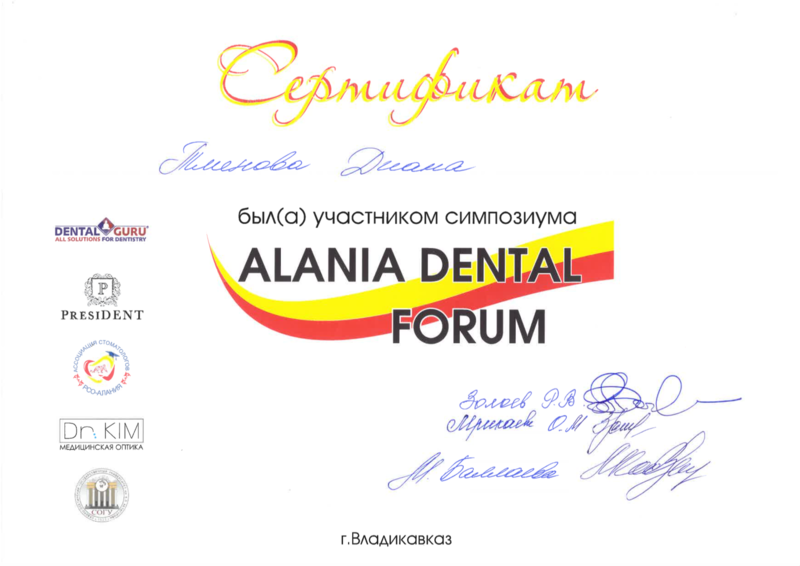 Сертификат
Тменова Диана
был(а) участником симпозиума
ALANIA DENTAL
FORUM
DENTAL GURU
ALL SOLUTIONS FOR DENTISTRY
P
PRESIDENT
АССОЦИАЦИЯ СТОМАТОЛОГОВ
РСО-АЛАНИЯ
Dr. KIM
МЕДИЦИНСКАЯ ОПТИКА
СОГУ
Золоев Р.В.
Мрикаев О.М
М. Баллаева
г.Владикавказ